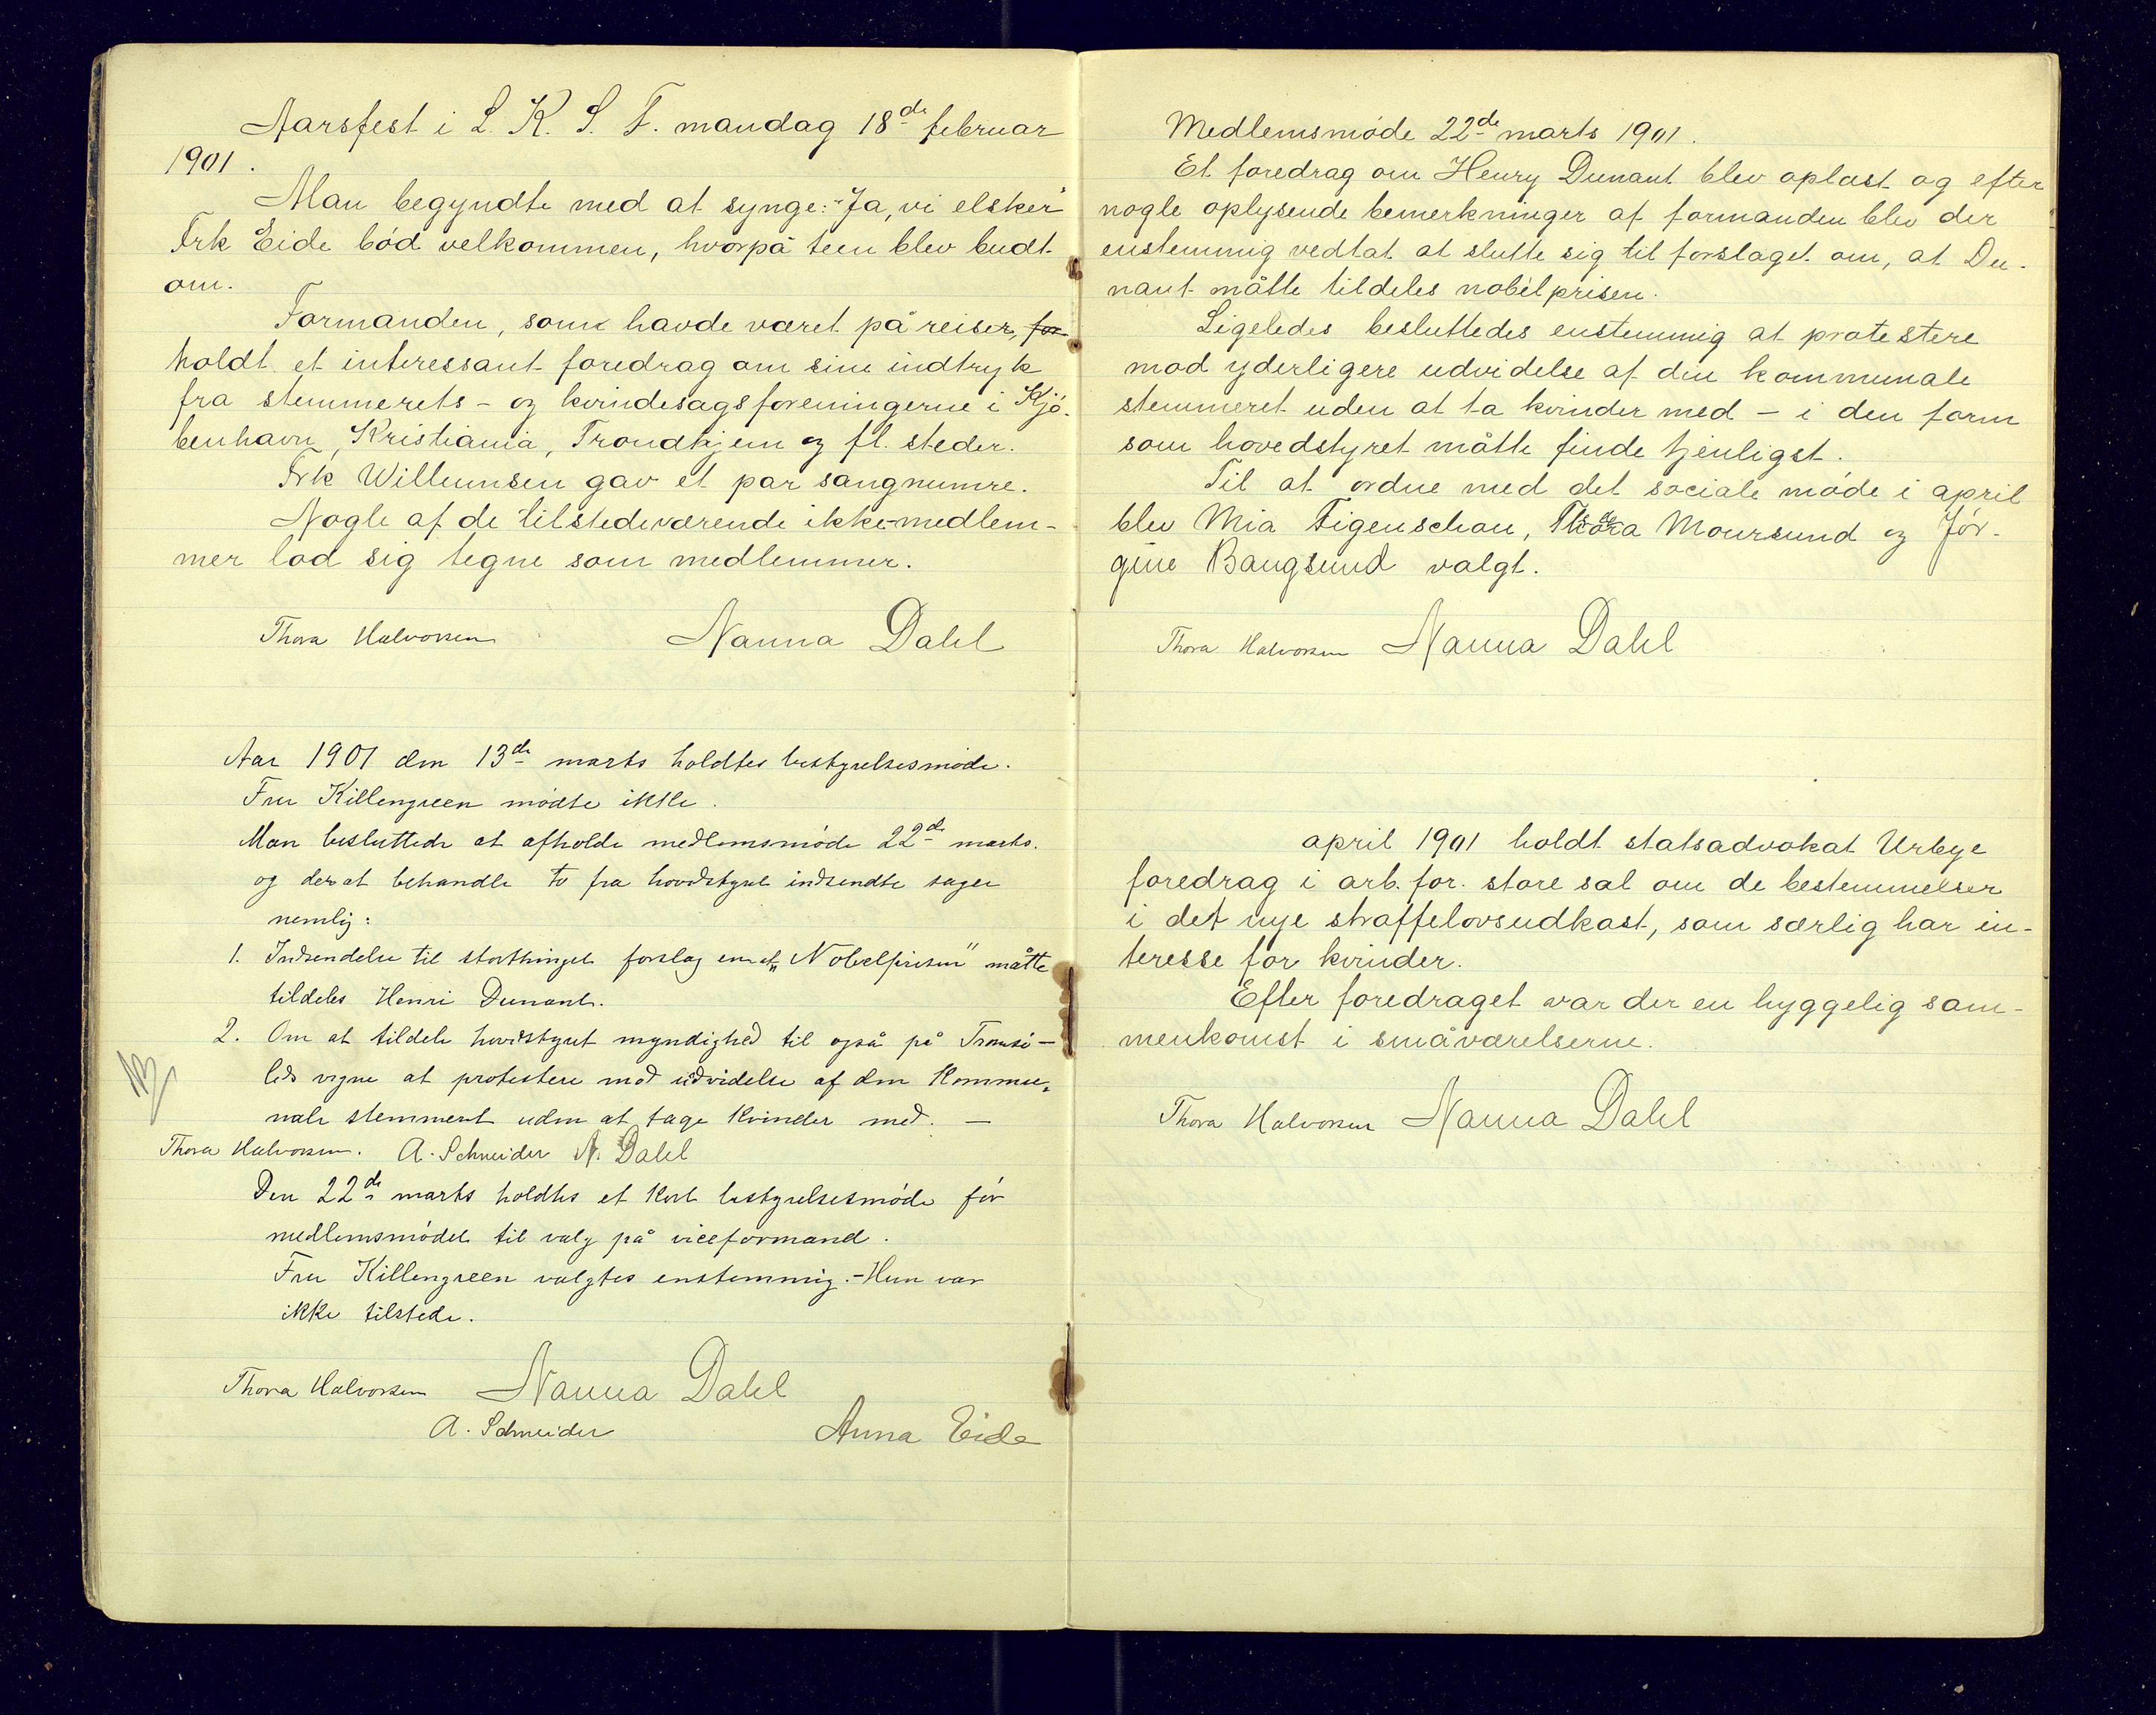 Aarsfest i L. K. S. F. mandag 18de februar
1901.
Man begyndte med at synge: "Ja, vi elsker"
Frk Eide bød velkommen, hvorpå teen blev budt
om.
Formanden, som havde været på reiser, for
holdt et interessant foredrag om sine indtryk
fra stemmerets- og kvindesagsforeningerne i Kjø-
benhavn, Kristiania, Trondhjem og fl. steder.
Frk Willumsen gav et par sangnumre.
Nogle af de tilstedeværende ikke-medlem-
mer lod sig tegne som medlemmer.
Thora Halvorsen Nanna Dahl
Aar 1901 den 13de marts holdtes bestyrelsesmøde.
Fru Killengreen mødte ikke.
Man besluttede at afholde medlemsmøde 22de marts.
og der at behandle to fra hovedstyret indsendte sager
nemlig:
1. Indsendelse til storthinget forslag om at "Nobelprisen" måtte
tildeles Henri Dunant.
2. Om at tildele hovedstyret myndighed til også på Tromsø-
leds vegne at protestere mod udvidelse af den kommu-
nale stemmeret uden at tage kvinder med. —
Thora Halvorsen. A. Schneider N. Dahl
Den 22de marts holdtes et kort bestyrelsesmøde før
medlemsmødet til valg på viceformand.
Fru Killengreen valgtes enstemmig. - Hun var
ikke tilstede.
Thora Halvorsen Nanna Dahl
A. Schneider Anna Eide
Medlemsmøde 22de marts 1901.
Et foredrag om Henry Dunant blev oplæst og efter
nogle oplysende bemerkninger af formanden blev der
enstemmig vedtat at slutte sig til forslaget om, at Du-
nant måtte tildeles nobelprisen.
Ligeledes besluttedes enstemmig at protestere
mod yderligere udvidelse af den kommunale
stemmeret uden at ta kvinder med - i den form
som hovedstyret måtte finde tjenligst.
Til at ordne med det sociale møde i april
blev Mia Figenschou, Moursund og Jør-
gine Bangsund valgt.
Thora Halvorsen Nanna Dahl
april 1901 holdt statsadvokat Urbye
foredrag i arb. for. store sal om de bestemmelser
i det nye straffelovsudkast, som særlig har in-
teresse for kvinder.
Efter foredraget var der en hyggelig sam-
menkomst i småværelserne.
Thora Halvorsen Nanna Dahl